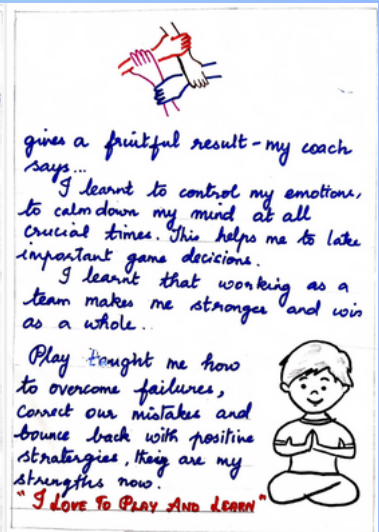 gives a fruitful result - my coach
says...
I learnt to control my emotions,
to calm down my mind at all
crucial times. This helps me to take
important game decisions.
I learnt that working as a
team makes me stronger and win
as a whole..
Play taught me how
to overcome failures,
correct our mistakes and
bounce back with positive
stratergies, they are my
strengths now.
"I LOVE TO PLAY AND LEARN"